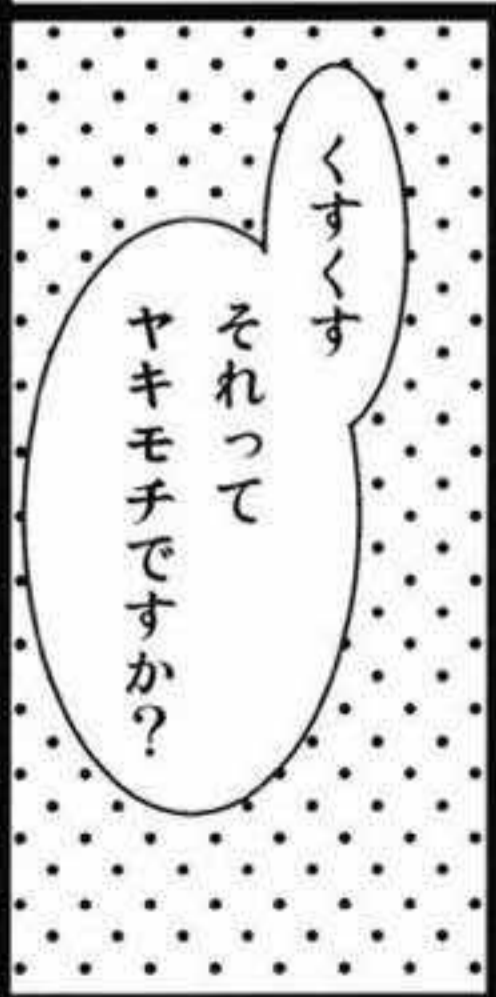 くすくす
それって
ヤキモチですか?